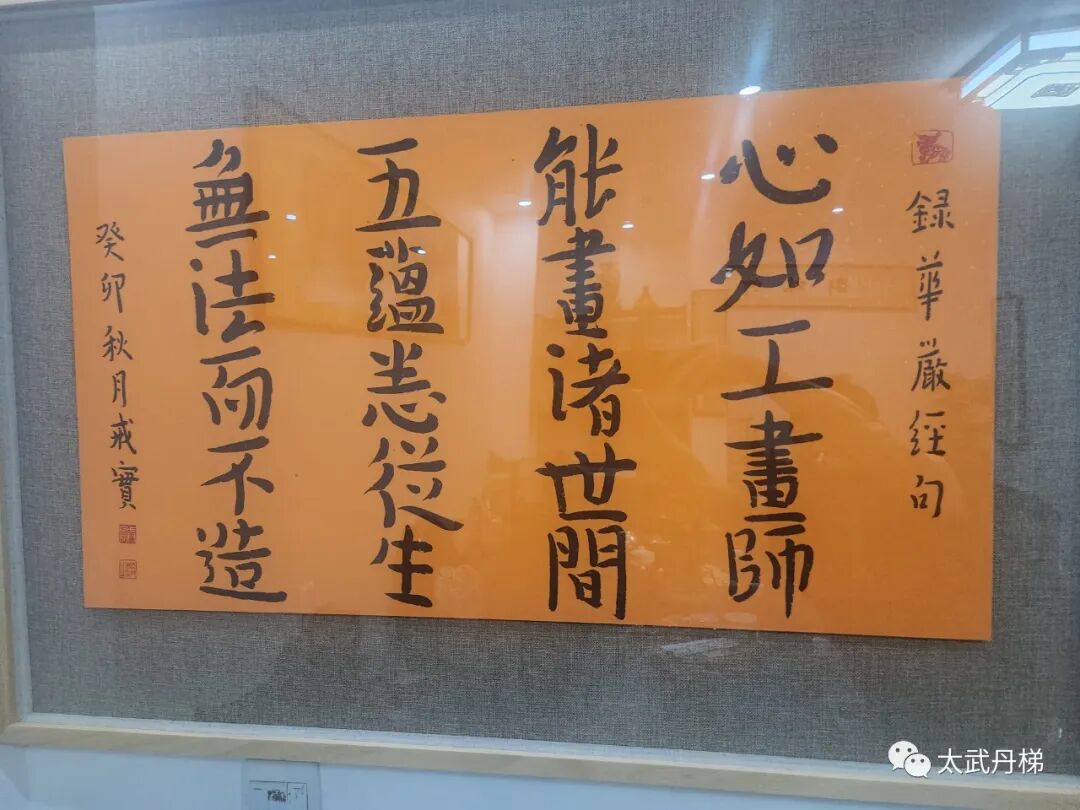 録華嚴經句
心如工畫師
能畫諸世間
五蘊悉從生
無法而不造
癸卯秋月戒實
太武丹梯